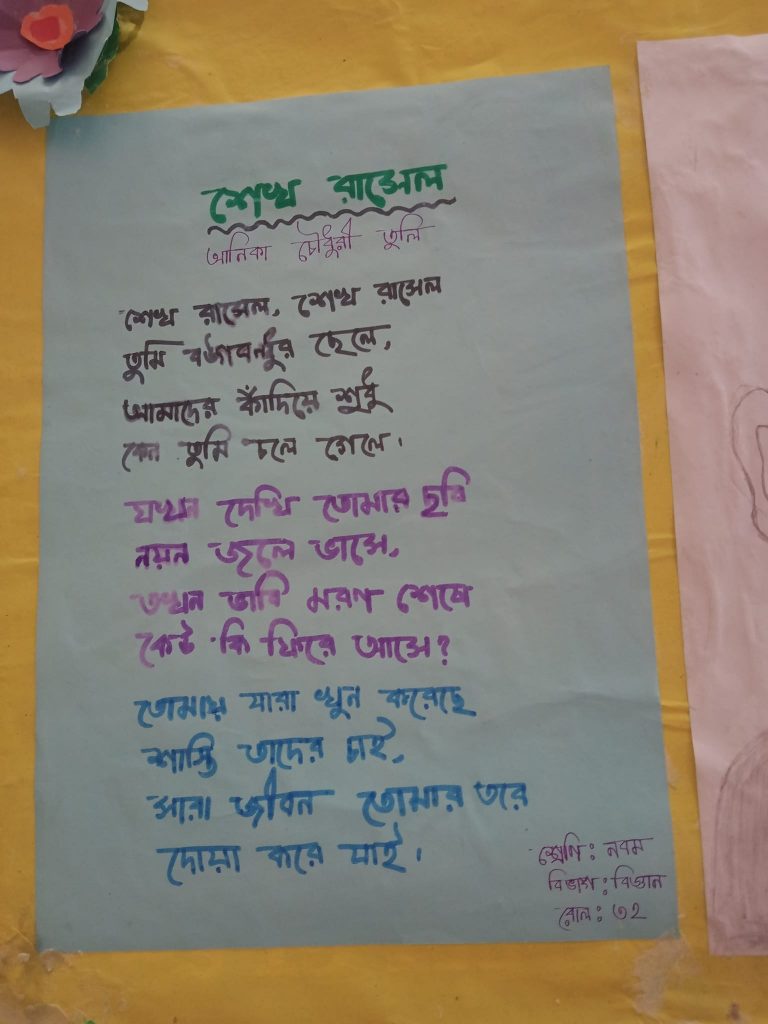 শেখ রাসেল
আনিকা চৌধুরী তুলি
শেখ রাসেল, শেখ রাসেল
তুমি বঙ্গবন্ধুর ছেলে,
আমাদের কাঁদিয়ে শুধু
কেন তুমি চলে গেলে।
যখন দেখি তোমার ছবি
নয়ন জলে ভাসে,
তখন ভাবি মরণ শেষে
কেউ কি ফিরে আসে?
তোমায় যারা খুন করেছে
শাস্তি তাদের চাই,
সারা জীবন তোমার তরে
দোয়া করে যাই।
শ্রেণি: নবম
বিভাগ: বিজ্ঞান
রোল: ৩২